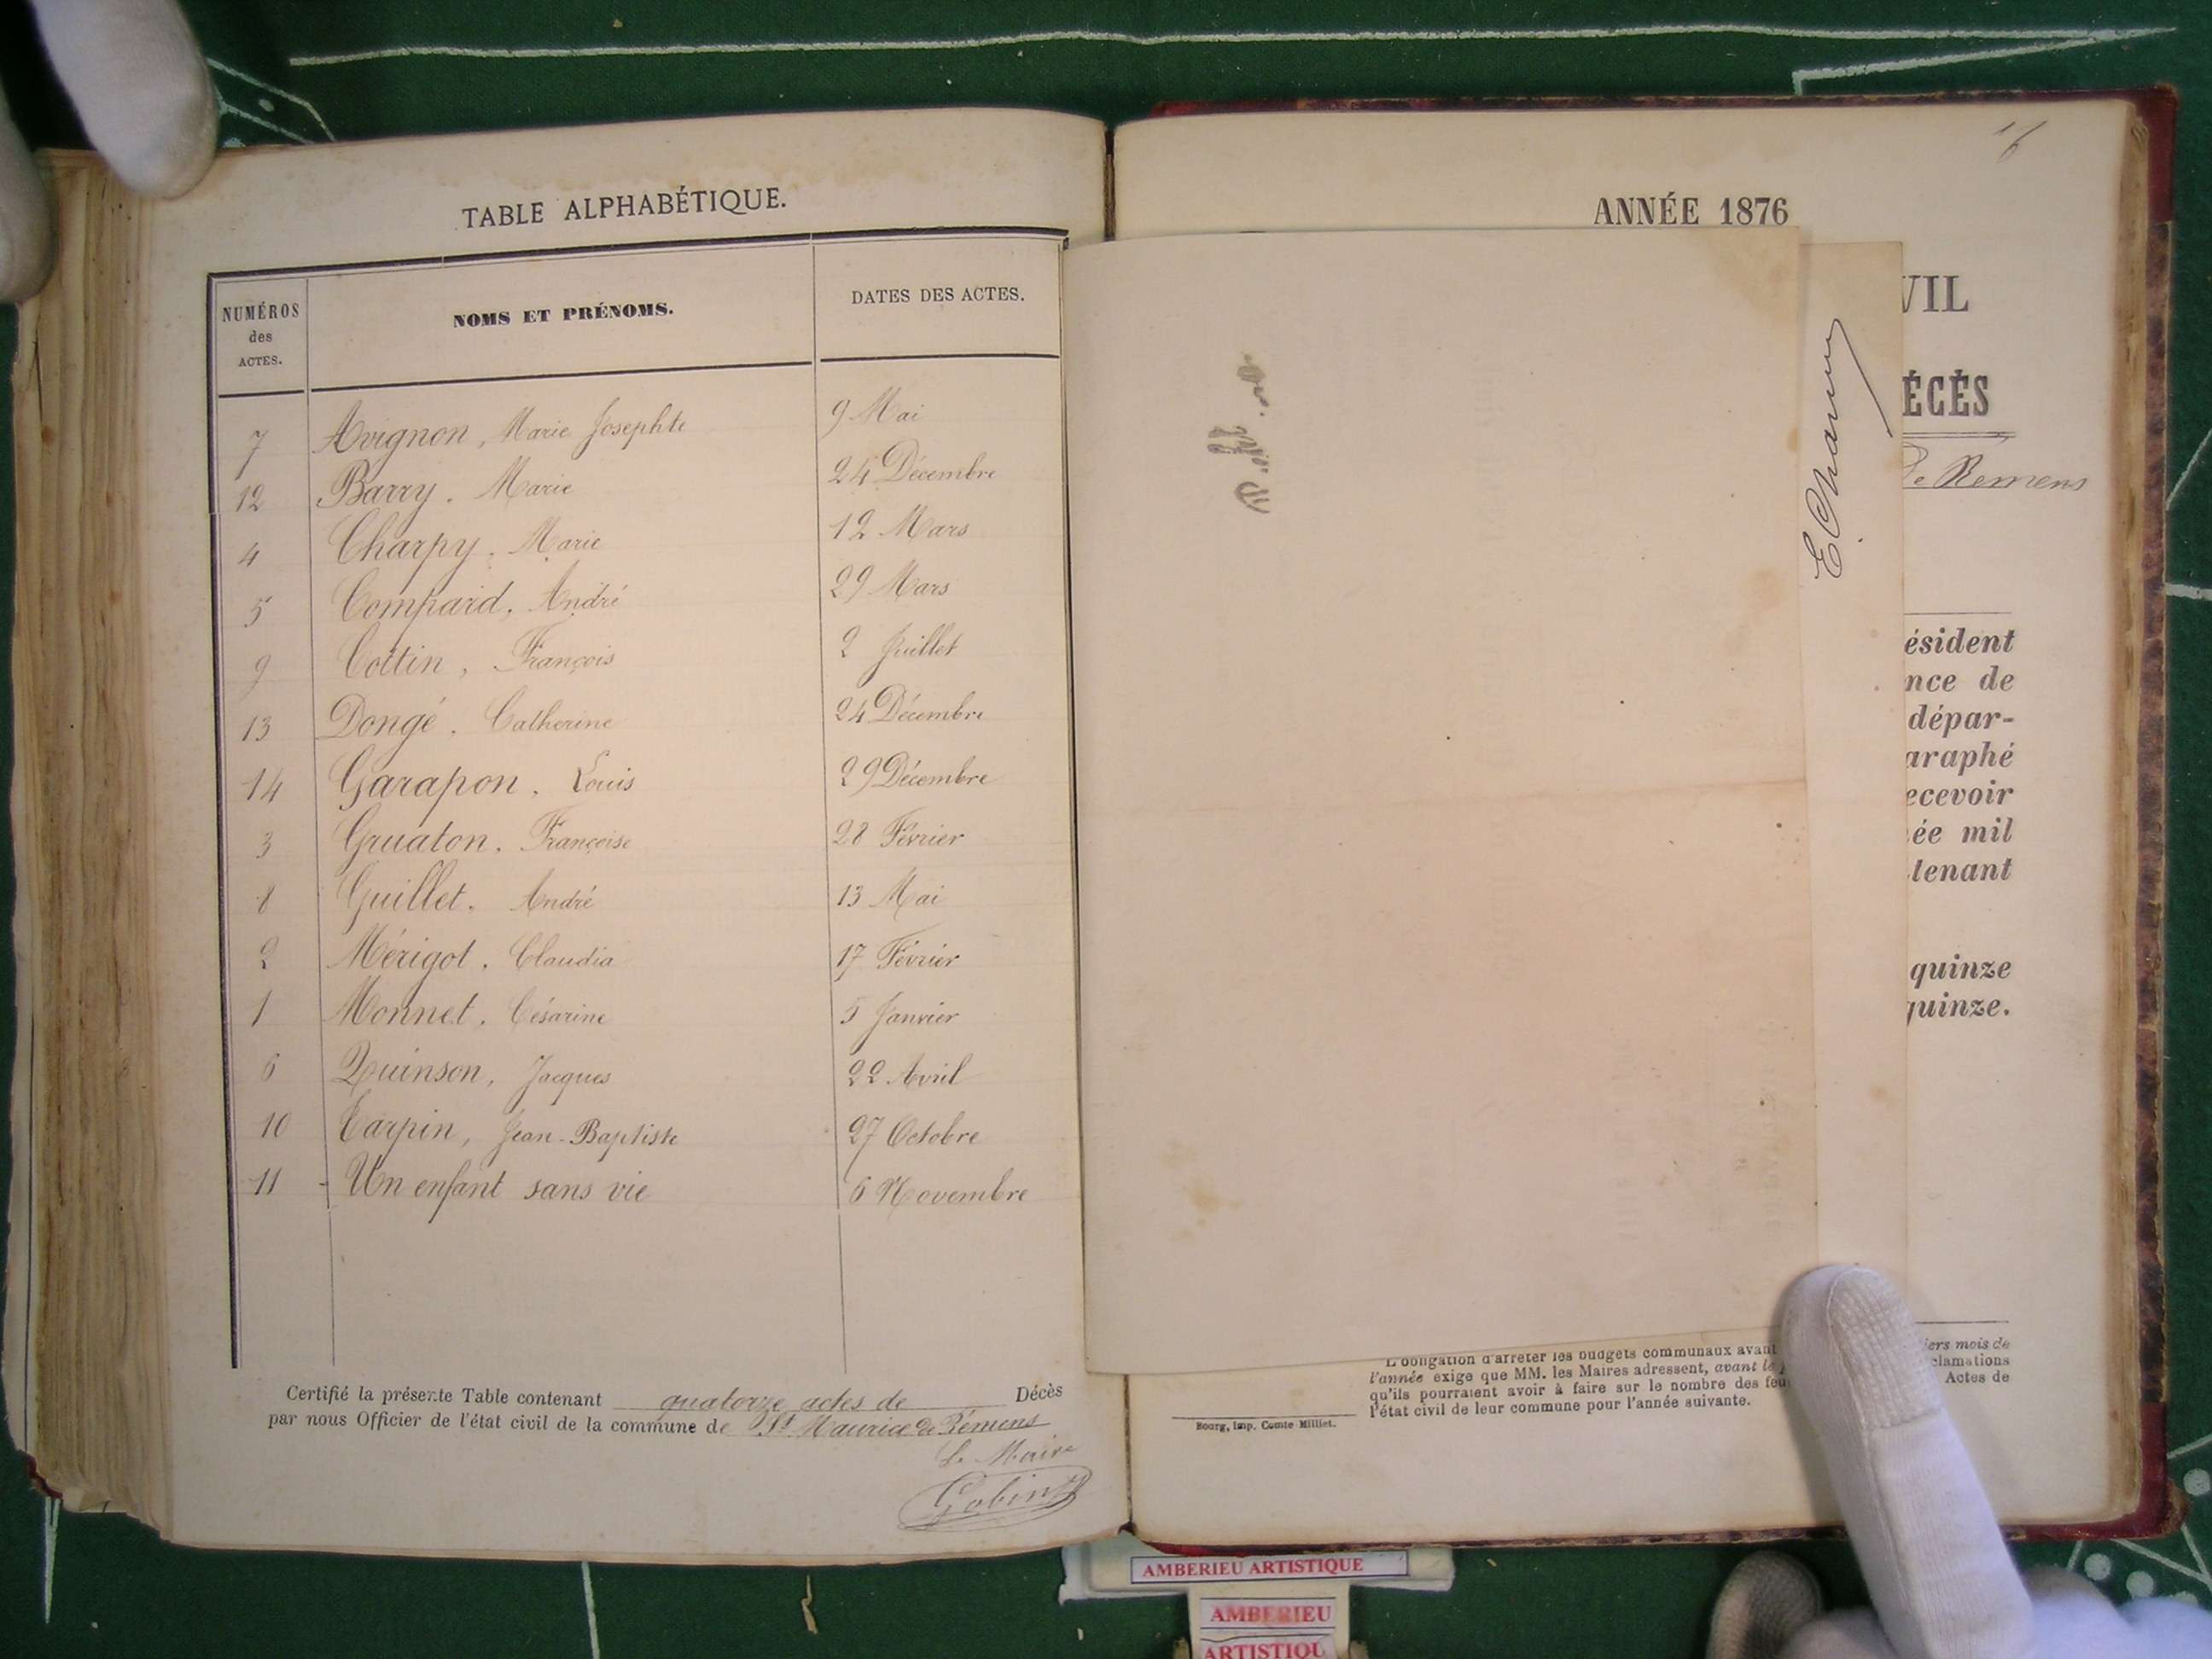 TABLE ALPHABÉTIQUE.
NUMÉROS des ACTES. NOMS ET PRÉNOMS. DATES DES ACTES.
7 Avignon, Marie Josephte 9 Mai
12 Barry. Marie 24 Décembre
4 Charpy. Marie 12 Mars
5 Compard. André 29 Mars
9 Cottin, François 2 Juillet
13 Dongé. Catherine 24 Décembre
14 Garapon. Louis 29 Décembre
3 Gruaton. Françoise 28 Février
8 Guillet. André 13 Mai
2 Mérigot. Claudia 17 Février
1 Monnet. Césarine 5 Janvier
6 Quinson, Jacques 22 Avril
10 Tarpin, Jean-Baptiste 27 Octobre
11 - Un enfant sans vie 6 Novembre
Certifié la présente Table contenant quatorze actes de Décès
par nous Officier de l'état civil de la commune de St Maurice de Rémens
Le Maire
Gobin
16
ANNÉE 1876
VIL
ÉCÈS
de Remens
ésident
nce de
dépar-
araphé
ecevoir
ée mil
tenant
quinze
quinze.
L'obligation d'arrêter les budgets communaux avant iers mois de
l'année exige que MM. les Maires adressent, avant le clamations
qu'ils pourraient avoir à faire sur le nombre des feu Actes de
l'état civil de leur commune pour l'année suivante.
Bourg, Imp. Comte-Milliet.
AMBERIEU ARTISTIQUE
AMBERIEU
ARTISTIQU